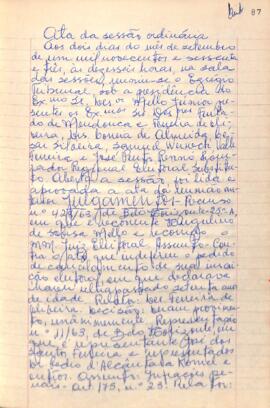 87
Ata da sessão ordinária
Aos dois dias do mês de setembro
de um mil novecentos e sessenta
e três, às dezesseis horas, na sala
das sessões, reuniu-se o Egrégio
Tribunal, sob a presidência do
Exmo Sr. Des. Mello Júnior
sentes os Exmos Srs. Des.
de Mendonça e Pereira de Oli
veira, Drs. Bonna de Almeida,
Silveira, Samuel Werneck
e José Pinto Renno,
rador Regional Eleitoral Substitu
to. Aberta a sessão, foi lida e
aprovada a ata da reunião ante
rior. Julgamentos: Processo
nº 429/63, de Belo Horizonte 25ª-A,
em que é recorrente
de Sousa Mello e recorrido o
MM. Juiz Eleitoral. Assunto: Con
tra o ato que indeferiu o pedido
de cancelamento de sua inscri
ção eleitoral, em que declara
haver ultrapassado setenta anos
de idade. Relator: Des. Pereira de
Oliveira. Decisão: Deram provimen
to, unanimemente. Representação
nº 11/63, de Belo Horizonte, em
que é representante José dos
Santos Pereira e representados
de Pedro d'Alcântara
e outros. Assunto: Infrações pe
nais. Art. 175, nº 23. Rela tor: